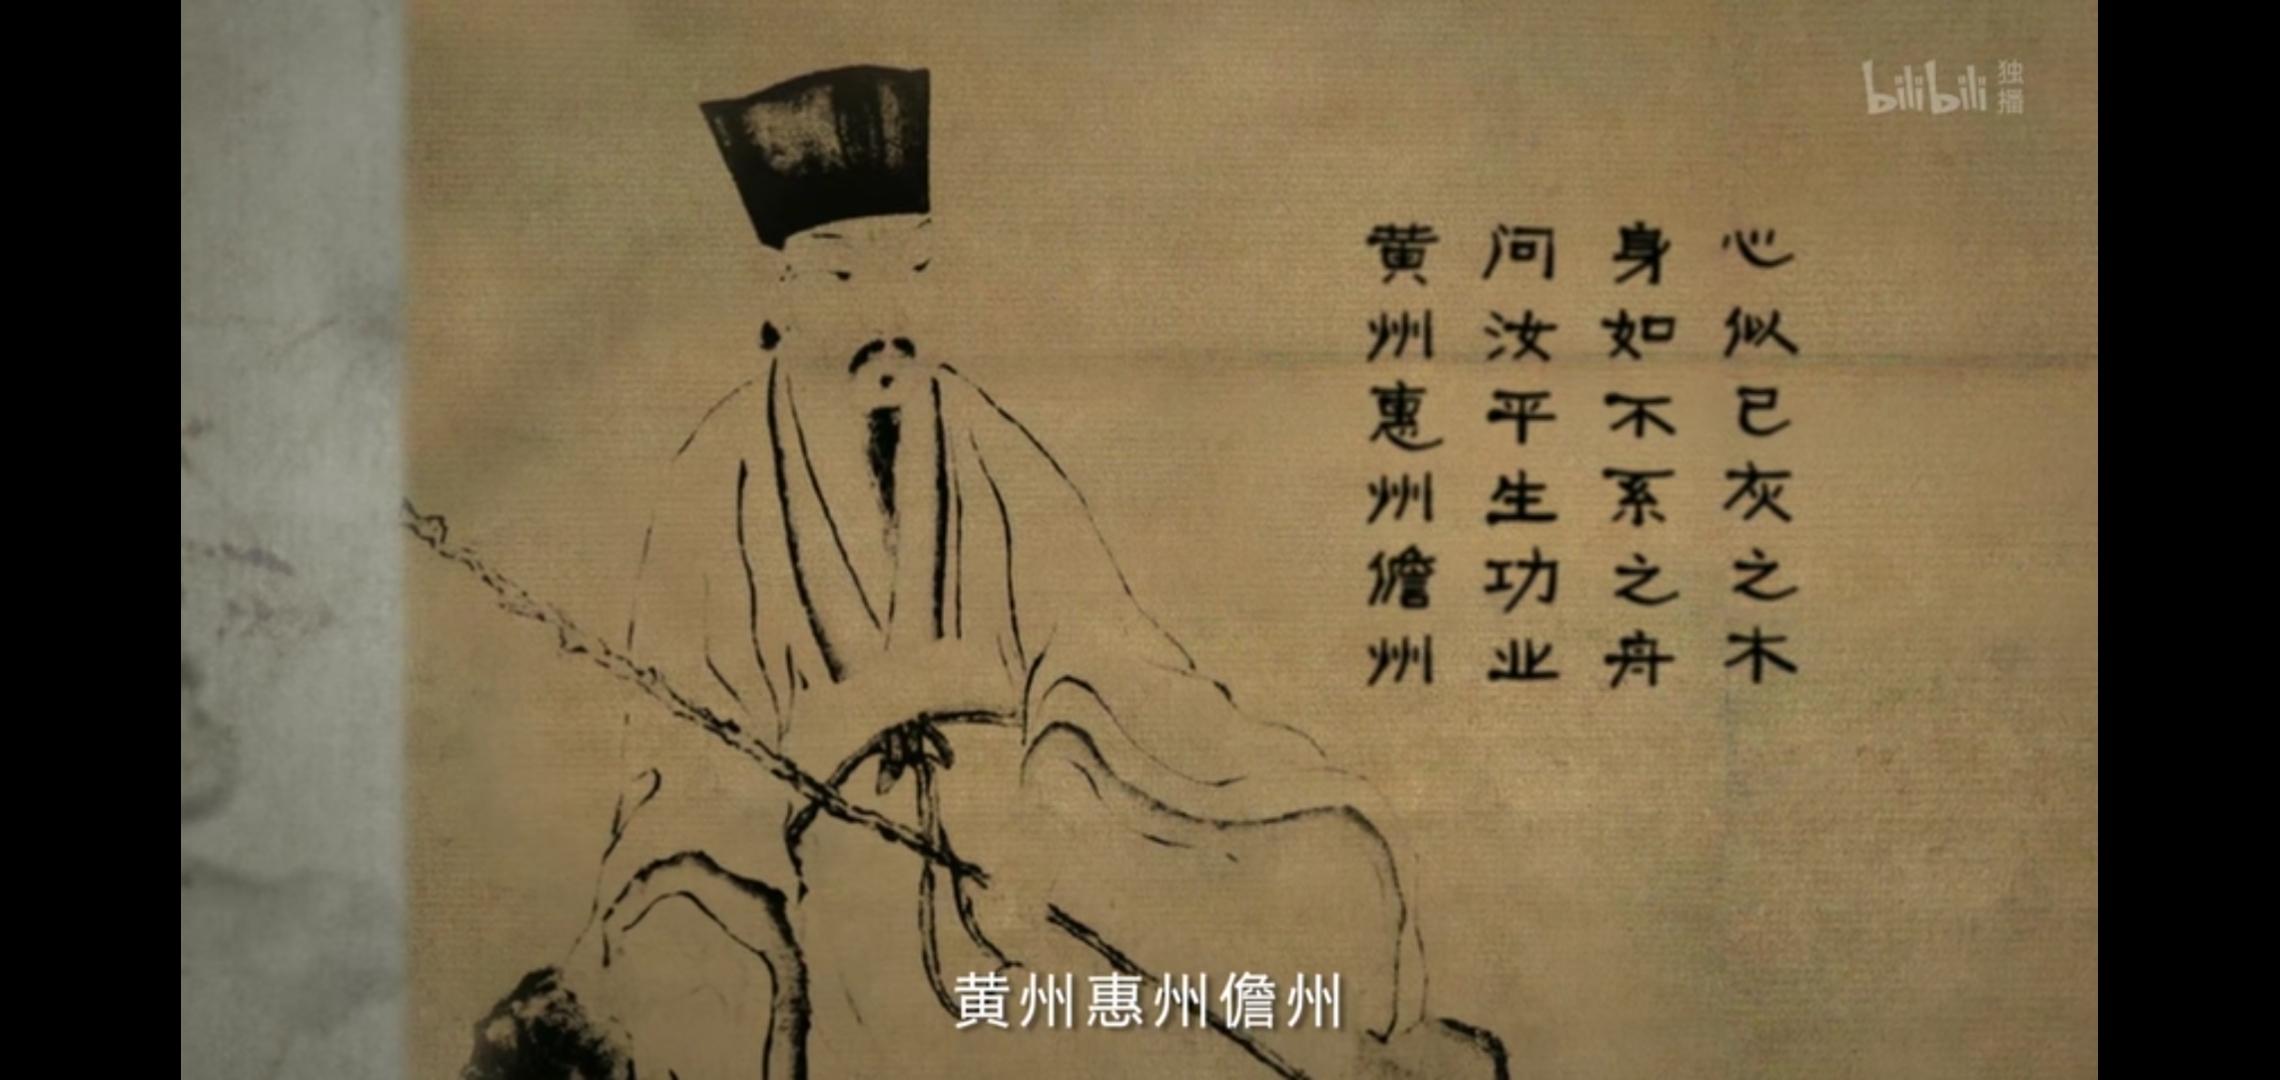 bilibili 独播
心似已灰之木
身如不系之舟
问汝平生功业
黄州惠州儋州
黄州惠州儋州